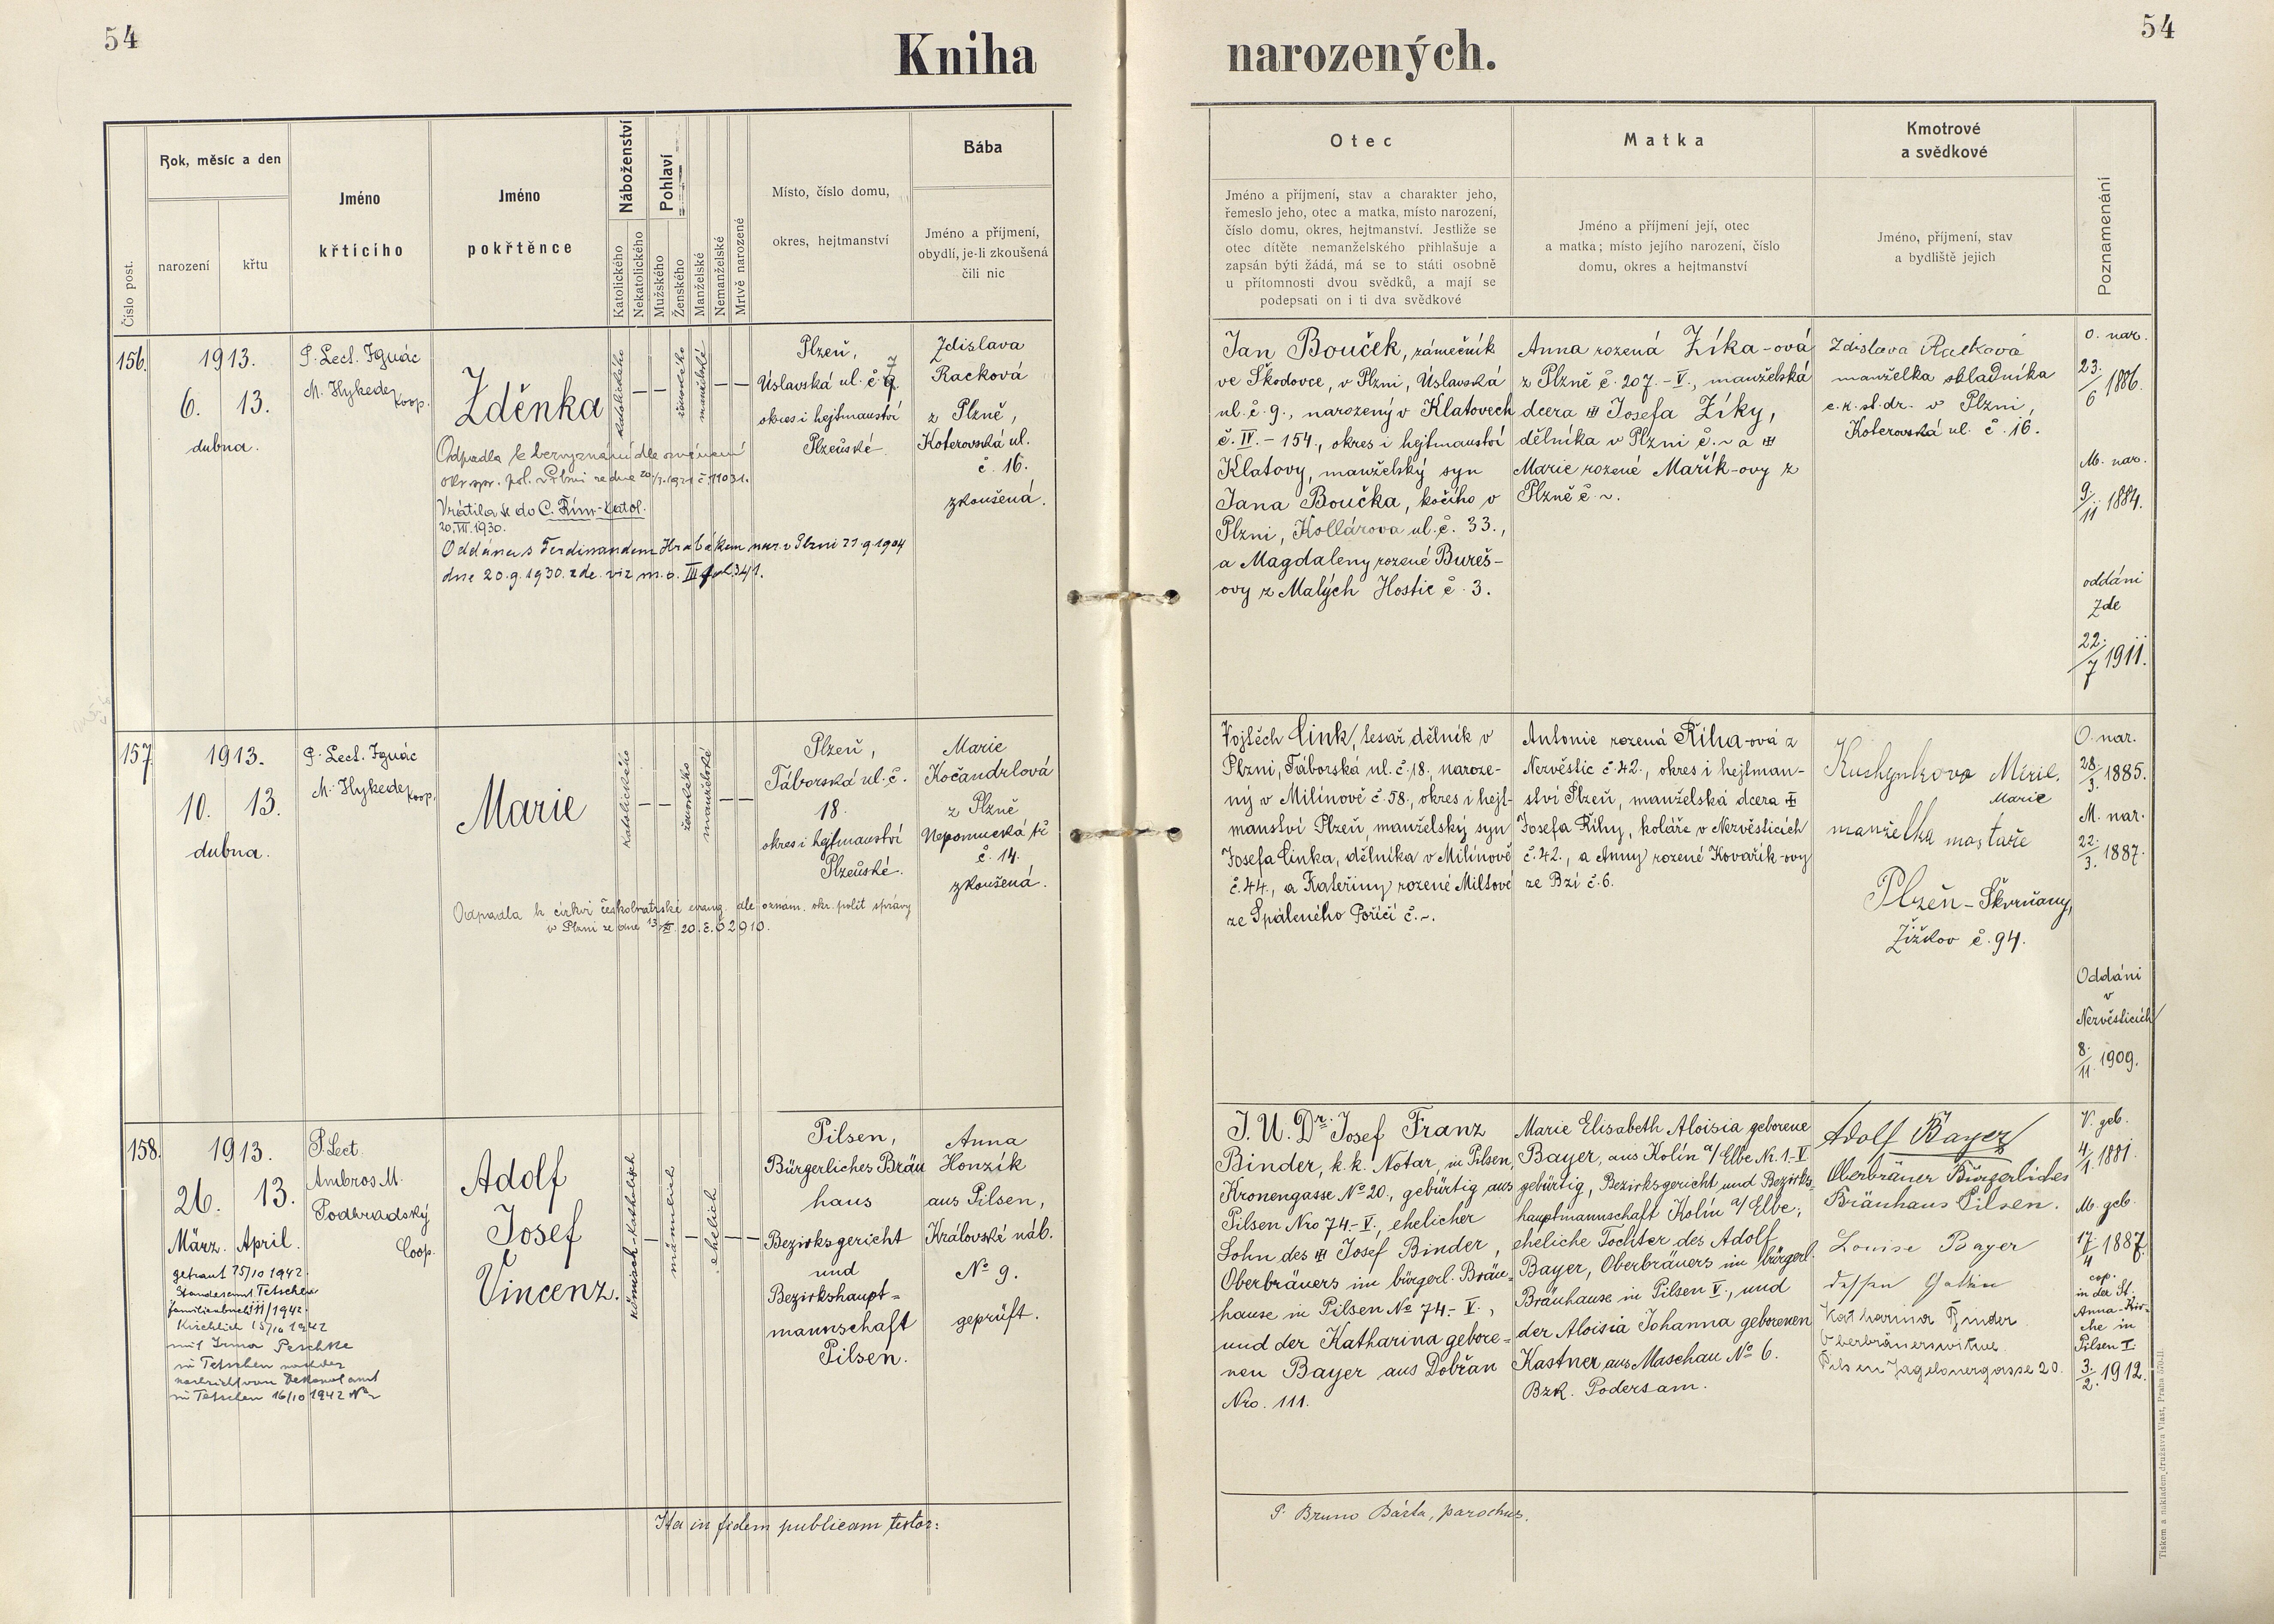 54
Kniha
narozených.
54
Číslo post.
Rok, měsíc a den
narození
křtu
Jméno
křtícího
Jméno
pokřtěnce
Náboženství
Katolického
Nekatolického
Pohlaví
Mužského
Ženského
Manželské
Nemanželské
Mrtvě narozené
Místo, číslo domu,
okres, hejtmanství
Bába
Jméno a příjmení,
obydlí, je-li zkoušená
čili nic
Otec
Jméno a příjmení, stav a charakter jeho,
řemeslo jeho, otec a matka, místo narození,
číslo domu, okres, hejtmanství. Jestliže se
otec dítěte nemanželského přihlašuje a
zapsán býti žádá, má se to státi osobně
u přítomnosti dvou svědků, a mají se
podepsati on i ti dva svědkové
Matka
Jméno a příjmení její, otec
a matka; místo jejího narození, číslo
domu, okres a hejtmanství
Kmotrové
a svědkové
Jméno, příjmení, stav
a bydliště jejich
Poznamenání
156.
1913.
6. 13.
dubna.
P. Lect. Ignác
M. Hykede
koop.
Zděnka
Odpadla k bezvyznání dle oznámení
okr. spr. pol. v Plzni ze dne 20/7.1921 č. 11031.
Vrátila se do C. Řím-katol.
20.VII.1930.
Oddána s Ferdinandem Hrabákem nar. v Plzni 21.9.1904
dne 20.9.1930. zde. viz m. o. III fol 341.
katolického
— —
ženského
manželské
— —
Plzeň,
Úslavská ul. č. 9.
7
okres i hejtmanství
Plzeňské.
Zdislava
Racková
z Plzně,
Koterovská ul.
č. 16.
zkoušená.
Jan Bouček, zámečník
ve Škodovce, v Plzni, Úslavská
ul. č. 9., narozený v Klatovech
č. IV. – 154., okres i hejtmanství
Klatovy, manželský syn
Jana Boučka, kočího v
Plzni, Kollárova ul. č. 33.,
a Magdaleny rozené Bureš-
ovy z Malých Hostic č. 3.
Anna rozená Zíka-ová
z Plzně č. 207. – V., manželská
dcera Josefa Zíky,
dělníka v Plzni č. ~ a
Marie rozené Mařík-ovy z
Plzně č ~.
Zdislava Racková
manželka skladníka
c. k. st. dr. v Plzni,
Koterovská ul. č. 16.
O. nar.
23./6 1886.
M. nar.
9/11 1884.
oddáni
zde
22./7 1911.
157.
1913.
10. 13.
dubna.
P. Lect. Ignác
M. Hykede
koop.
Marie
Odpadla k církvi českobratrské evang. dle oznám. okr. polit správy
katolického
— —
ženského
manželské
— —
Plzeň,
Táborská ul. č.
18.
okres i hejtmanství
Plzeňské.
Marie
Kočandrlová
z Plzně
Nepomucká tř.
č. 14.
zkoušená.
Vojtěch Cink, tesař. dělník v
Plzni, Táborská ul. č. 18., naroze-
ný v Milínově č. 58., okres i hejt-
manství Plzeň, manželský syn
Josefa Cinka, dělníka v Milínově
č. 44., a Kateřiny rozené Miltové
ze Spáleného Poříčí č. ~.
Antonie rozená Říha-ová z
Nezvěstic č. 42., okres i hejtman-
ství Plzeň, manželská dcera
Josefa Říhy, koláře v Nezvěsticích
č. 42., a Anny rozené Kovařík-ovy
ze Bzí č. 6.
Marie
manželka
Plzeň – Škvrňany,
Žižkov č. 94.
O. nar.
28./3. 1885.
M. nar.
22./3. 1887.
Oddáni
v
Nezvěsticích
8./11. 1909.
158.
1913.
26. 13.
März. April.
getraut 15/10 1942.
Standesamt Tetschen
Familienbuch /1942.
Kirchlich 15/10 1942
mit Irma Peschke
in Tetschen nach der
Nachricht vom Dekanalamt
in Tetschen 16/10 1942 No ~
P. Lect.
Ambros M.
Podhradský
Coop.
Adolf
Josef
Vincenz.
römisch-katholisch
—
männlich
—
ehelich
— —
Pilsen,
Bürgerliches Bräu
haus
Bezirksgericht
und
Bezirkshaupt-
mannschaft
Pilsen.
Anna
Honzík
aus Pilsen,
Královské náb.
No 9.
geprüft.
J. U. Dr. Josef Franz
Binder, k. k. Notar, in Pilsen,
Kronengasse No 20., gebürtig aus
Pilsen Nro 74.– V., ehelicher
Sohn des Josef Binder,
Oberbräuers im bürgerl. Bräu-
hause in Pilsen No 74.– V.,
und der Katharina gebore-
nen Bayer aus Dobřan
Nro. 111.
Marie Elisabeth Aloisia geborene
Bayer, aus Kolín a/ Elbe Nr. 1.–V
gebürtig, Bezirksgericht und Bezirks-
hauptmannschaft Kolín a/ Elbe;
eheliche Tochter des Adolf
Bayer, Oberbräuers im bürgerl.
Bräuhause in Pilsen V., und
der Aloisia Johanna geborenen
Kastner aus Maschau No 6.
Bzk. Podersam.
Adolf Bayer
Oberbräuer Bürgerliches
Bräuhaus Pilsen.
Louise Bayer
dessen Gattin
Katharina Binder
Oberbräuerswitwe
Pilsen Jagelonergasse 20.
V. geb.
4/1. 1881.
M. geb.
17/4 1887.
cop.
in der St.
Anna-Kir-
che in
Pilsen I.
3./2. 1912.
Ita in fidem publicam testor:
P. Bruno Bárta, parochus.
Tiskem a nakladem družstva Vlast, Praha 570-II.